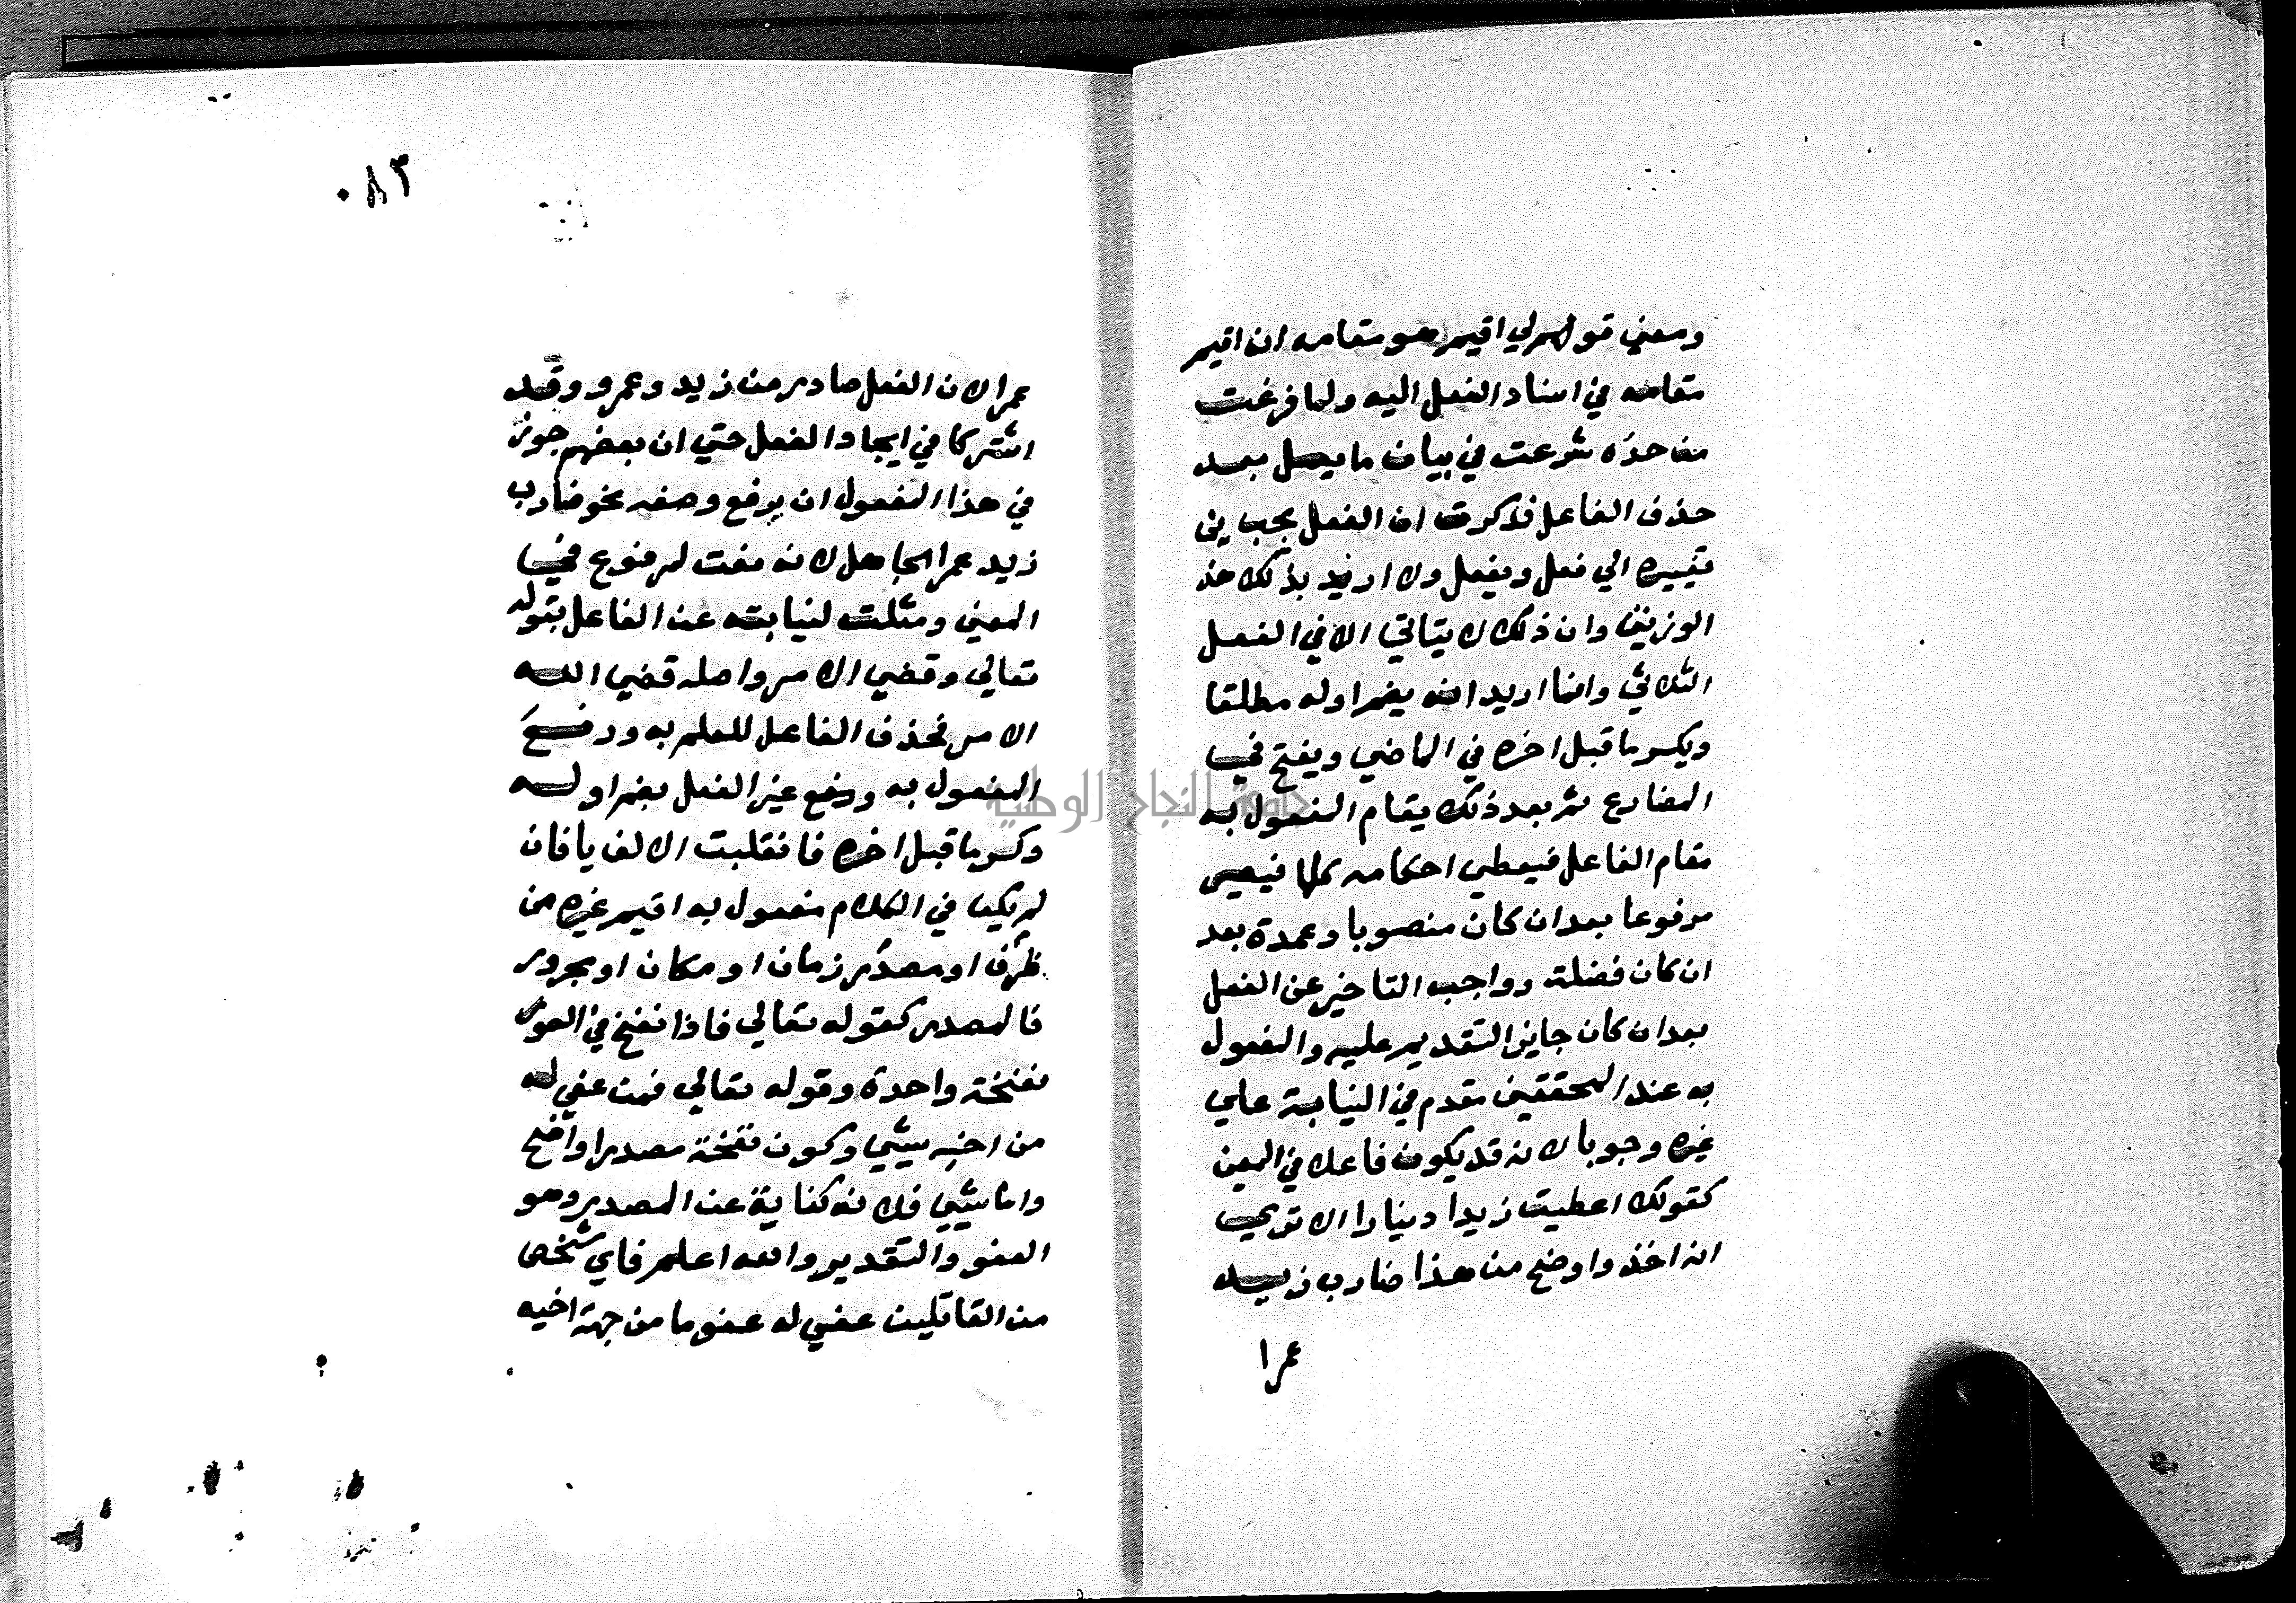 ومعني قولهم لي اقيم هو مقامه ان اقيم
مقامه في اسناد الفعل اليه ولما فرغت
من حده شرعت في بيان ما يعمل بعد
حذف الفاعل فذكرت ان الفعل يجب
تغييره الي فعل ويفعل ولا اريد بذلك هذ
الوزنين وان ذلك لا يتاتي الا في الفعل
الثلاثي وانما اريد انه يضم اوله مطلقا
ويكسر ما قبل اخره في الماضي ويفتح في
المضارع ثم بعد ذلك يقام المفعول به
مقام الفاعل فيعطي احكامه كلها فيصير
مرفوعا بعد ان كان منصوبا وعمدة بعد
ان كان فضلة وواجب التاخير عن الفعل
بعد ان كان جايز التقديم عليه والمفعول
به عند المحققين مقدم في النيابة علي
غيره وجوبا لانه قد يكون فاعلا في المعني
كقولك اعطيت زيدا دينارا الا تري
انه اخذ واوضح من هذا ضارب زيد
عمرا
٠٨٣
عمرا لان الفعل صادر من زيد وعمرو وقد
اشتركا في ايجاد الفعل حتي ان بعضهم جوز
في هذا المفعول ان يرفع وصفه نحو ضارب
زيد عمرا الجاهل لانه نعت لمرفوع في
المعني ومثلت لنيابته عن الفاعل بقوله
تعالي وقضي الامر واصله قضي الله
الامر فحذف الفاعل للعلم به ورفع
المفعول به وغير الفعل بضم اوله
وكسر ما قبل اخره فانقلبت الالف يا فان
لم يكن في الكلام مفعول به اقيم غيره من
ظرف او مصدر زمان او مكان او مجرور
فالمصدر كقوله تعالي فاذا نفخ في الصور
نفخة واحدة وقوله تعالي فمن عفي له
من اخيه شيئ وكون نفخة مصدرا واضح
واما شيئ فلانه كناية عن المصدر وهو
العفو والتقدير والله اعلم فاي شخص
من القاتلين عفي له عفو ما من جهة اخيه
جامعة النجاح الوطنية